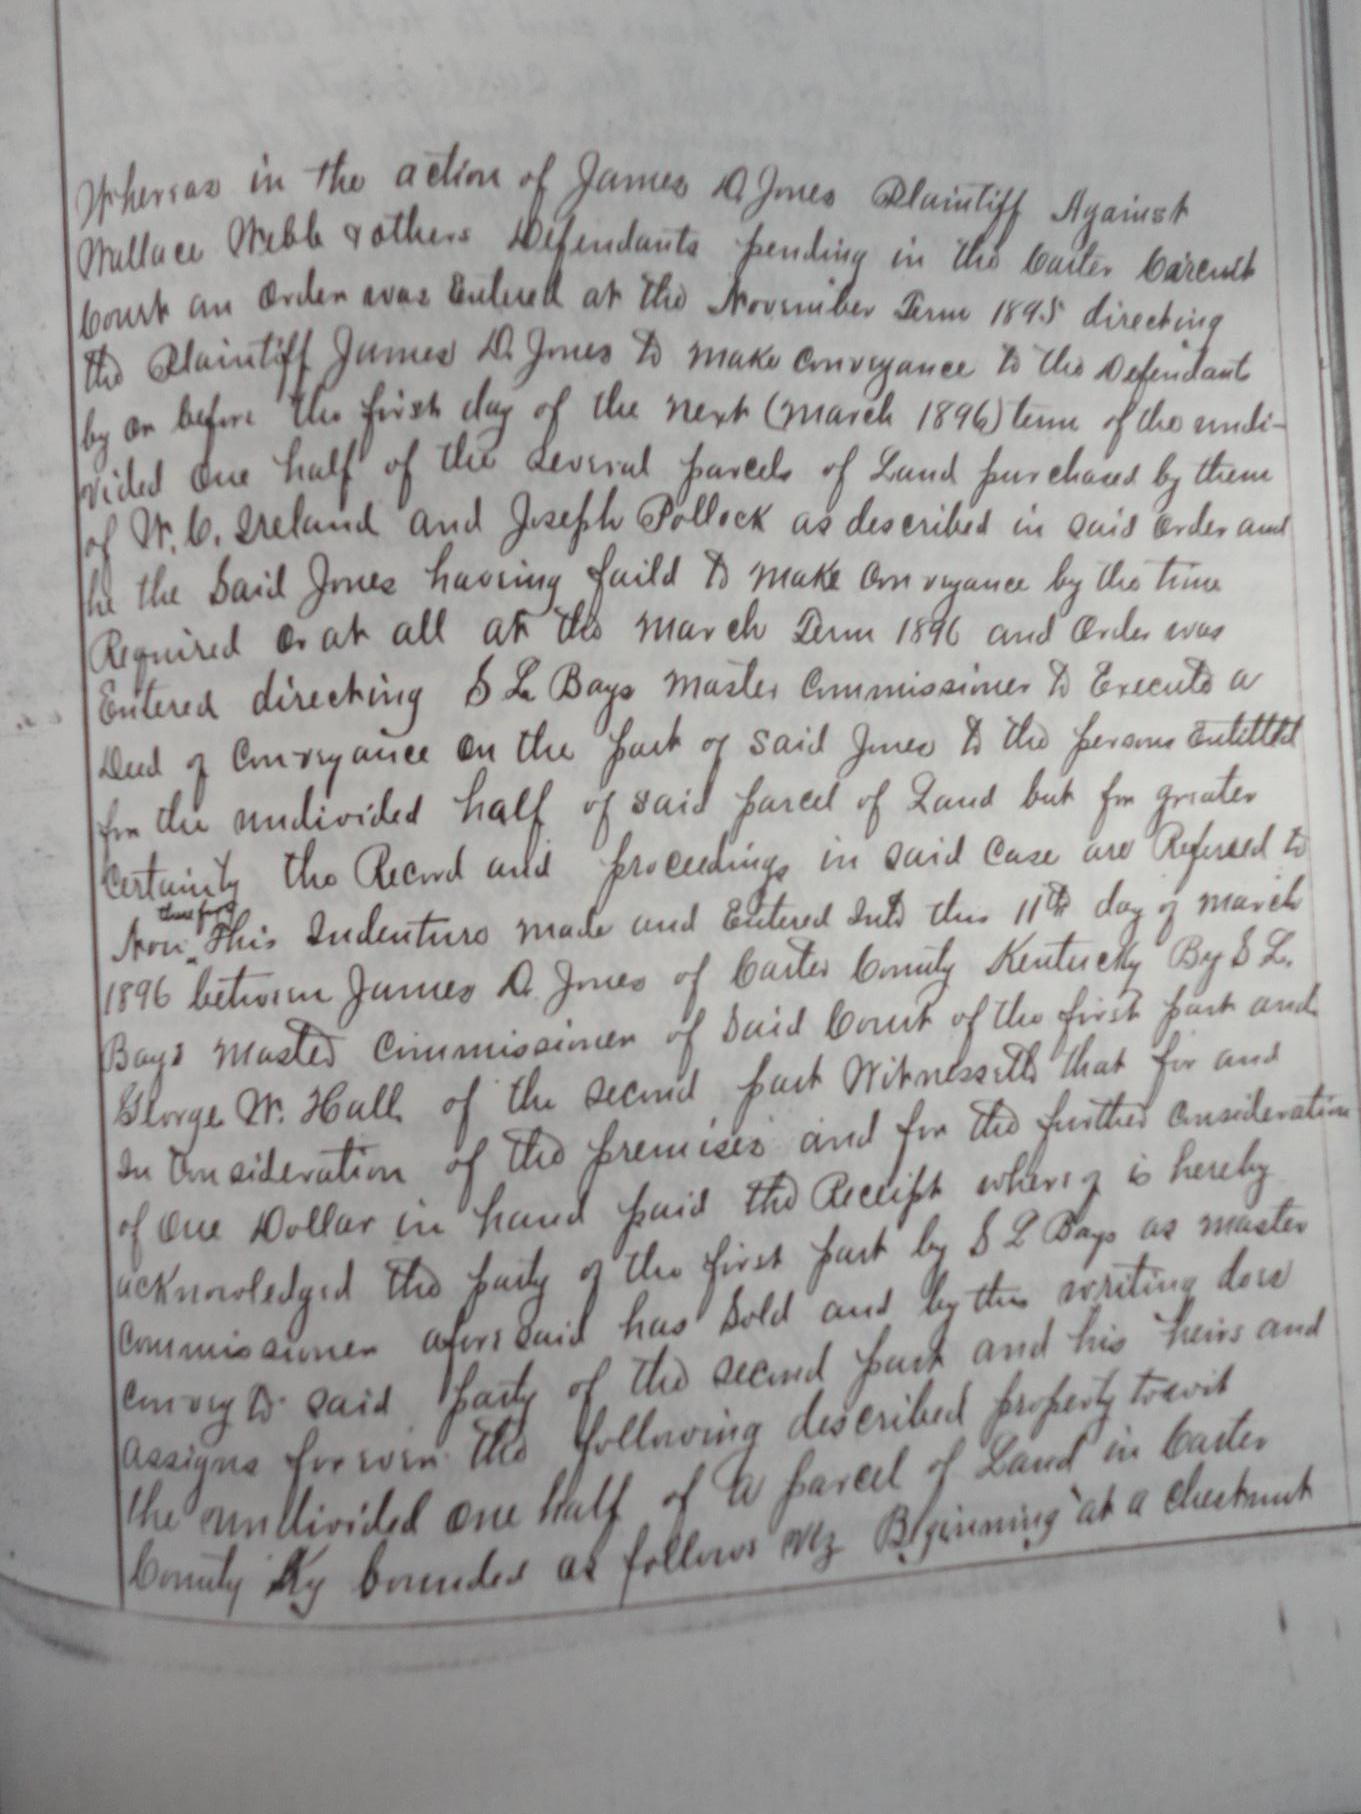 Whereas in the action of James D. Jones Plaintiff Against
Wallace Webb & others Defendants pending in the Carter Circuit
Court an Order was Entered at the November Term 1895 directing
the Plaintiff James D. Jones to make Conveyance to the Defendants
by or before the first day of the next (March 1896) term of the undi-
vided one half of the several parcels of Land purchased by them
of W. C. Ireland and Joseph Pollock as described in said Order and
he the Said Jones having faild to make Conveyance by the time
Required or at all at the March Term 1896 and Order was
Entered directing S L Bays Master Commissioner to Execute a
Deed of Conveyance on the part of said Jones to the persons Entitled
for the undivided half of said parcel of Land but for greater
Certainty the Record and proceedings in said Case are Refered to
Now therefore This Indenture made and Entered Into this 11th day of March
1896 between James D. Jones of Carter County Kentucky By S L.
Bays Master Commissioner of Said Court of the first part and
George W. Hall of the second part Witnesseth that for and
In Consideration of the premises and for the further Consideration
of One Dollar in hand paid the Receipt where of is hereby
acknowledged the party of the first part by S L Bays as Master
Commissioner afore said has Sold and by this writing does
Convey to said party of the second part and his heirs and
assigns forever the following described property towit
the undivided one half of a parcel of Land in Carter
County Ky bounded as follows viz Beginning at a Chestnut